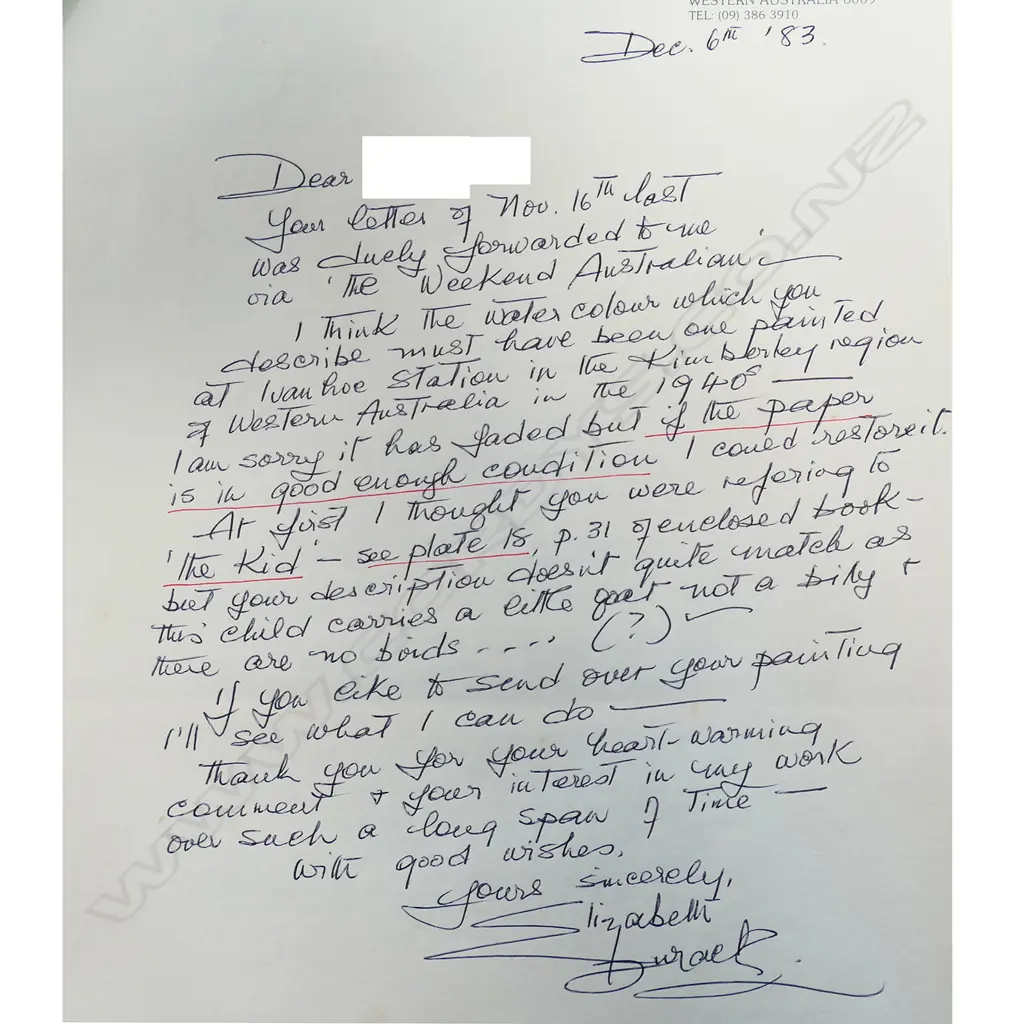 WESTERN AUSTRALIA 6009
TEL: (09) 386 3910
Dec. 6TH '83.
Dear
Your letter of Nov. 16TH last
was duely forwarded to me
via 'The Weekend Australian'.—
I think the water colour which you
describe must have been one painted
at Ivanhoe Station in the Kimberley region
of Western Australia in the 1940s —
I am sorry it has faded but if the paper
is in good enough condition I could restore it.
At first I thought you were refering to
'The Kid' – see plate 18, p. 31 of enclosed book –
but your description doesn't quite match as
this child carries a little goat not a billy +
there are no birds .... (?) ✓
If you like to send over your painting
I'll see what I can do —
Thank you for your heart-warming
comment + your interest in my work
over such a long span of time —
With good wishes,
Yours sincerely,
Elizabeth
Durack.